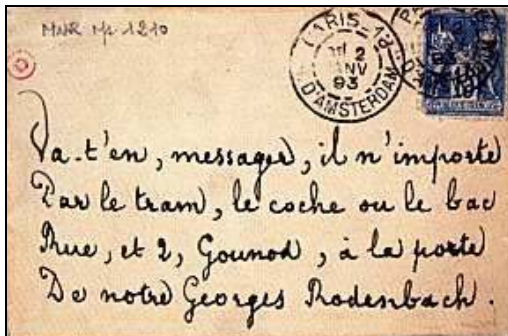 MNR Ms 1210
PARIS 18
2
93
R. D'AMSTERDAM
Va-t'en, messager, il n'importe
Par le tram, le coche ou le bac
Rue, et 2, Gounod, à la porte
De notre Georges Rodenbach.